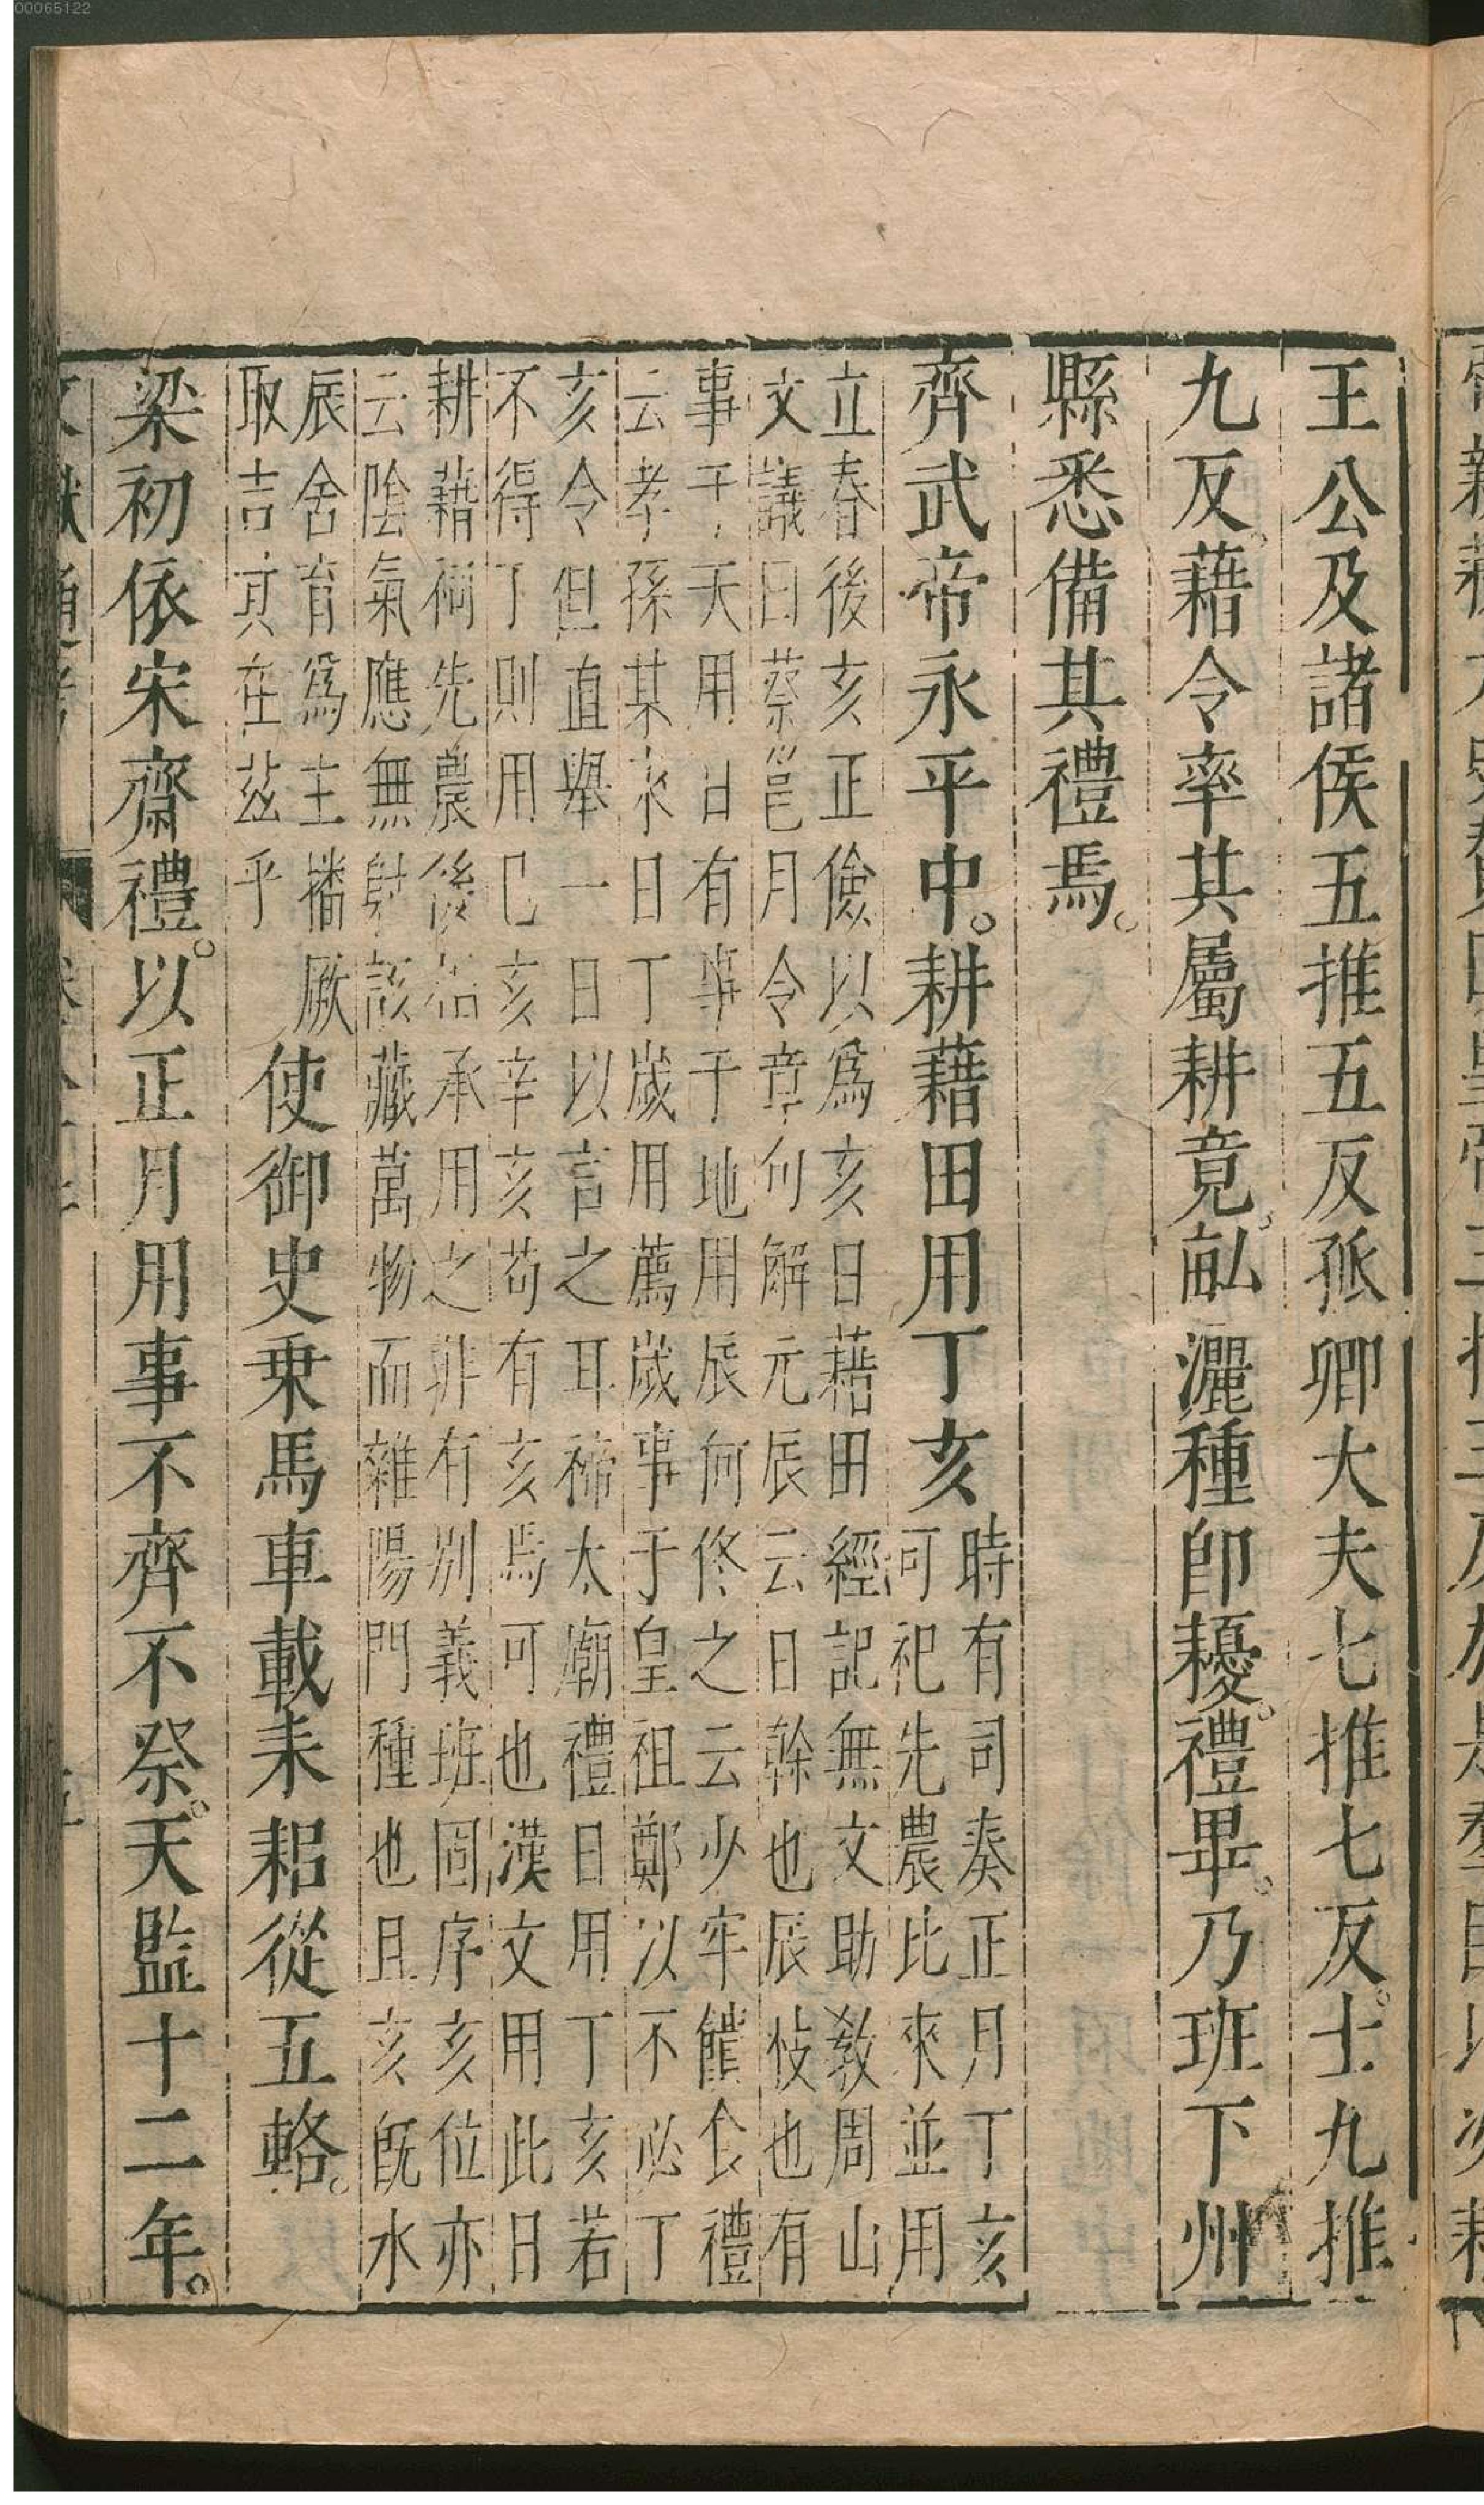 00065122
王公及諸侯五推五反孤卿大夫七推七反。士九推
九反。藉令率其屬耕竟畝。灑種即耰。禮畢。乃班下州
縣悉備其禮焉。
齊武帝永平中。耕藉田用丁亥時有司奏正月丁亥
可祀先農比來並用
立春後亥正儉以爲亥日藉田經記無文助教周山
文議曰蔡邕月令章句解元辰云日幹也辰枝也有
事于天用日有事于地用辰何佟之云少牢饋食禮
云孝孫某來日丁歲用薦歲事于皇祖鄭以不必丁
亥今但直舉一日以言之耳禘太廟禮日用丁亥若
不得丁則用巳亥辛亥苟有亥焉可也漢文用此日
耕藉祠先農後相承用之非有別義班固序亥位亦
云陰氣應無射該藏萬物而雜陽閡種也且亥旣水
辰舍育爲主播厥
取吉亥在茲乎
使御史乗馬車載耒耜從五輅。
梁初依宋齋禮。以正月用事不齊不祭。天監十二年。